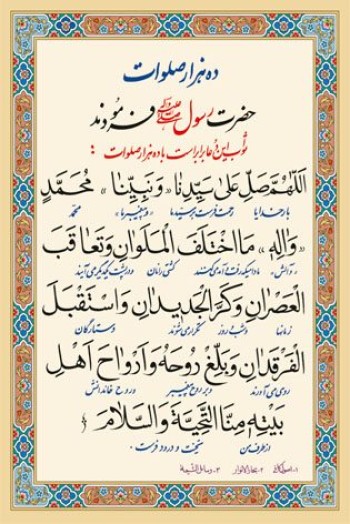 ده هزار صلوات
حضرت رسول ﷺ فرمودند
ثواب این دعا برابر است با ده هزار صلوات :
اَللّهُمَّ صَلِّ عَلىٰ سَيِّدِنا «وَ نَبِيِّنا» مُحَمَّدٍ
بار خدایا رحمت فرست بر سید ما «و پیغمبر ما» محمد
«وَ الِهِ» مَا اخْتَلَفَ الْمَلَوانِ وَ تَعاقَبَ
«و آلش» مادامیکه رفت و آمد می‌کنند
الْعَصْرانِ وَ كَرَّ الْجَديدانِ وَ اسْتَقْبَلَ
زمانها و شب و روز تکرار می‌شوند و ستارگان
الْفَرْقَدانِ وَ بَلِّغْ رُوحَهُ وَ اَرْواحَ اَهْلِ
روی می‌آورند و بر روح پیغمبر و روح خاندانش
بَيْتِهِ مِنَّا التَّحِيَّةَ وَ السَّلامَ ﴿
از طرف من تحیت و درود فرست .
۱- اصول کافی ۲- بحار الانوار ۳- وسائل الشیعة